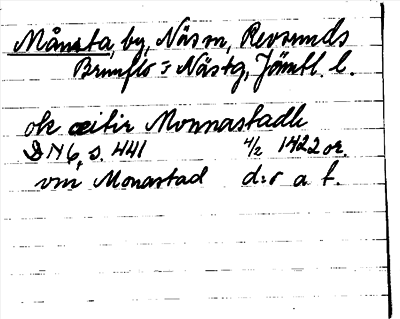 Månsta, by, Näs sn, Revsunds
Brunflo o Näs tg, Jämtl. l.
ok æitir Monnastadh
DN 6, s. 441 4/2 1422 or.
vm Monastad d:o a t.